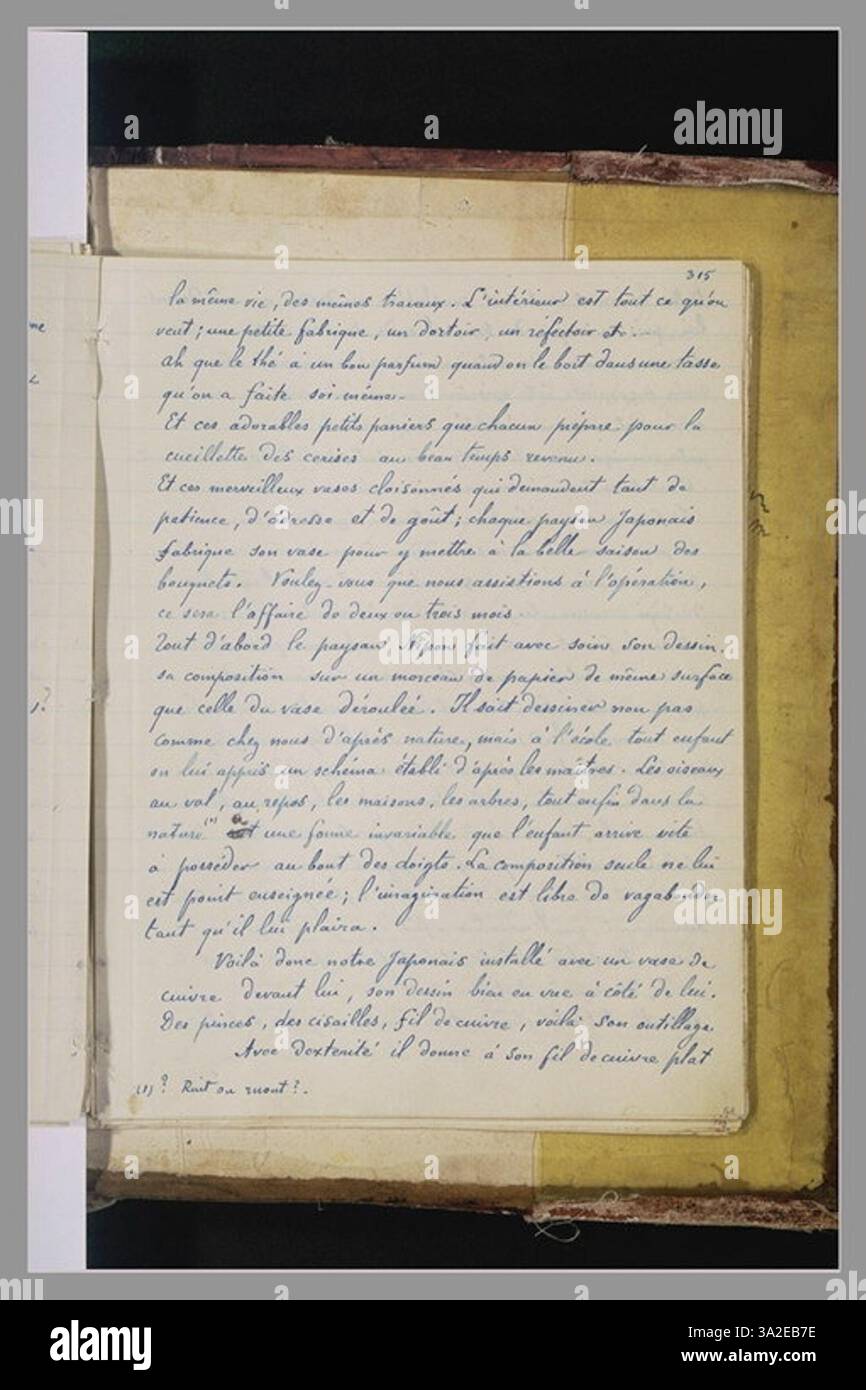 315
la même vie, des mêmes travaux. L'intérieur est tout ce qu'on
veut; une petite fabrique, un dortoir, un réfectoir etc.
Ah que le thé à un bon parfum quand on le boit dans une tasse
qu'on a faite soi même.
Et ces adorables petits paniers que chacun prépare pour la
cueillette des cerises au beau temps revenu.
Et ces merveilleux vases cloisonnés qui demandent tant de
patience, d'adresse et de goût; chaque paysan Japonais
fabrique son vase pour y mettre à la belle saison des
bouquets. Voulez-vous que nous assistions à l'opération,
ce sera l'affaire de deux ou trois mois
Tout d'abord le paysan Nipon fait avec soin son dessin.
sa composition sur un morceau de papier de même surface
que celle du vase déroulée. Il sait dessiner non pas
comme chez nous d'après nature, mais à l'école tout enfant
on lui appris un schéma établi d'après les maîtres. Les oiseaux
au vol, au repos, les maisons, les arbres, tout enfin dans la
nature (1) a une forme invariable que l'enfant arrive vite
à posséder au bout des doigts. La composition seule ne lui
est point enseignée; l'imagination est libre de vagabonder
tant qu'il lui plaira.
Voilà donc notre Japonais installé avec un vase de
cuivre devant lui, son dessin bien en vue à côté de lui.
Des pinces, des cisailles, fil de cuivre, voilà son outillage
Avec dextérité il donne à son fil de cuivre plat
(1) ?
me
s?
alamy
Image ID: 3A2EB7E
www.alamy.com